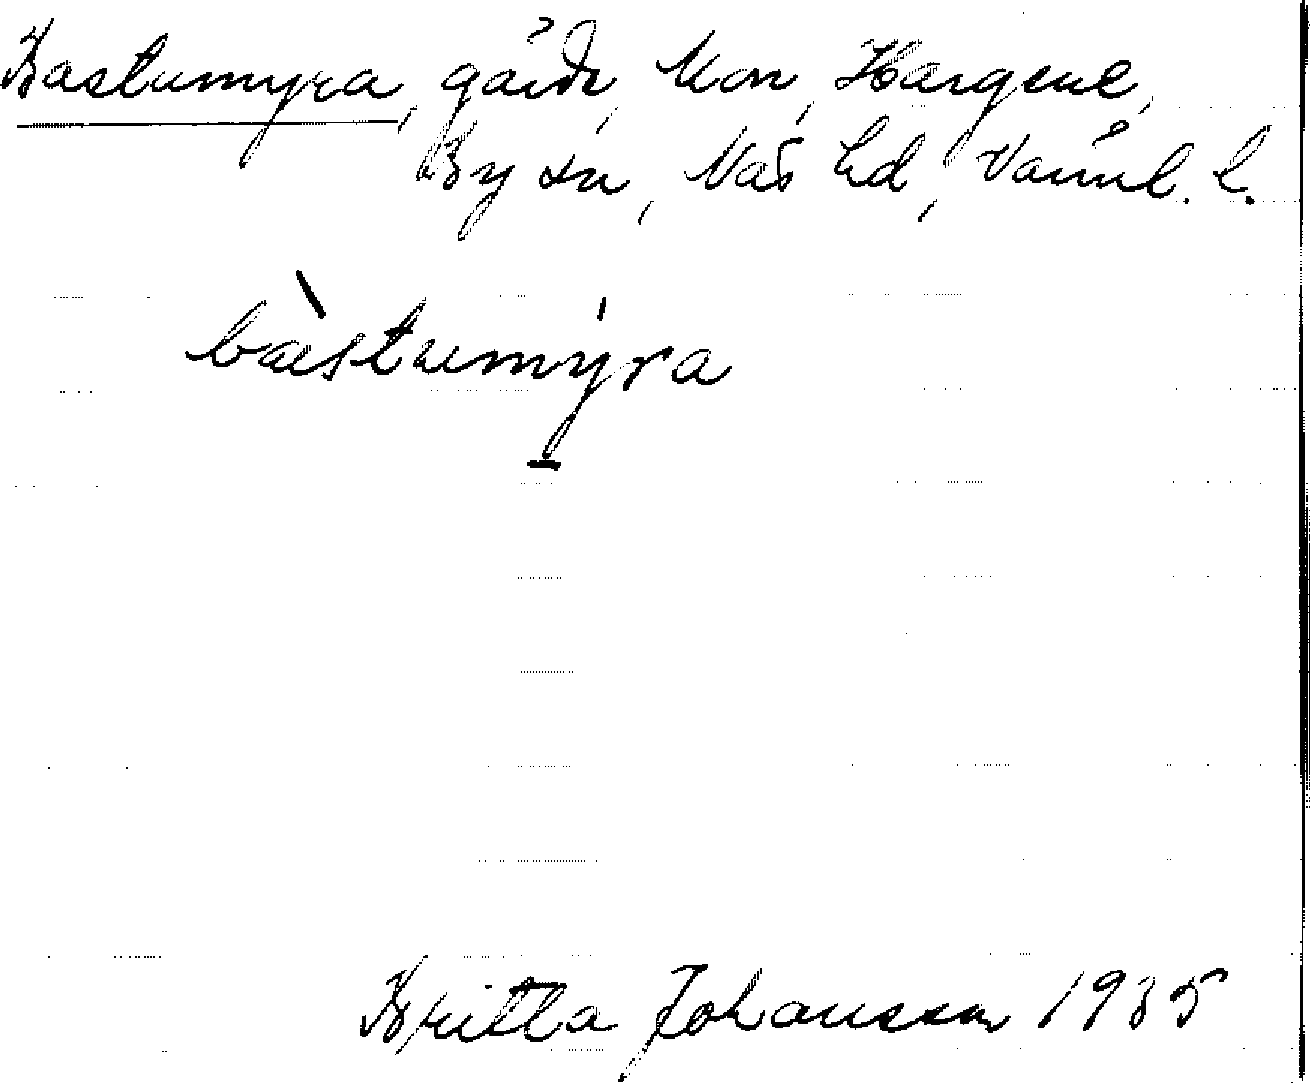 Bastumyra, gård, Mon, Hargene,
By sn, Näs hd, Värml. l.
bàstumýra
Britta Johansson 1935